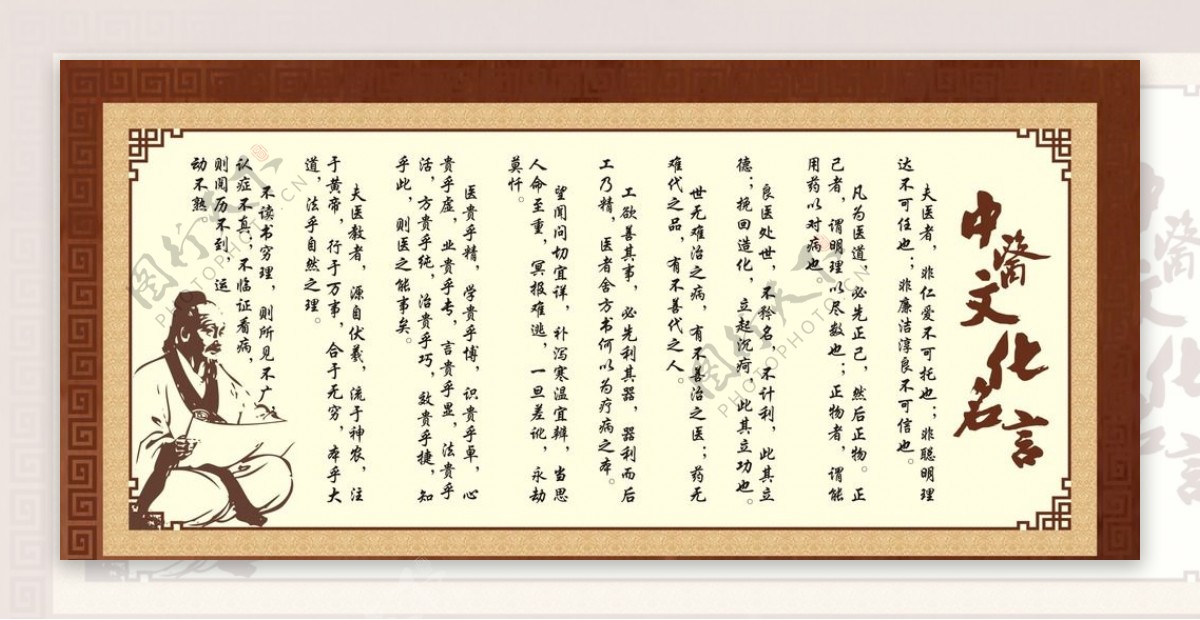 中醫文化名言
夫医者，非仁爱不可托也；非聪明理
达不可任也；非廉洁淳良不可信也。
凡为医道，必先正己，然后正物。正
己者，谓明理以尽数也；正物者，谓能
用药以对病也
良医处世，不矜名，不计利，此其立
德；挽回造化，立起沉疴，此其立功也。
世无难治之病，有不善治之医；药无
难代之品，有不善代之人。
工欲善其事，必先利其器，器利而后
工乃精，医者舍方书何以为疗病之本。
望闻问切宜详，补泻寒温宜辨，当思
人命至重，冥报难逃，一旦差讹，永劫
莫忏。
医贵乎精，学贵乎博，识贵乎卓，心
贵乎虚，业贵乎专，言贵乎显，法贵乎
活，方贵乎纯，治贵乎巧，效贵乎捷，知
乎此，则医之能事矣。
夫医教者，源自伏羲，流于神农，注
于黄帝，行于万事，合于无穷，本乎大
道，法乎自然之理。
不读书穷理，则所见不广，
认症不真；不临证看病，
则阅历不到，运
动不熟。
图行天下
PHOTOPHOTO.CN